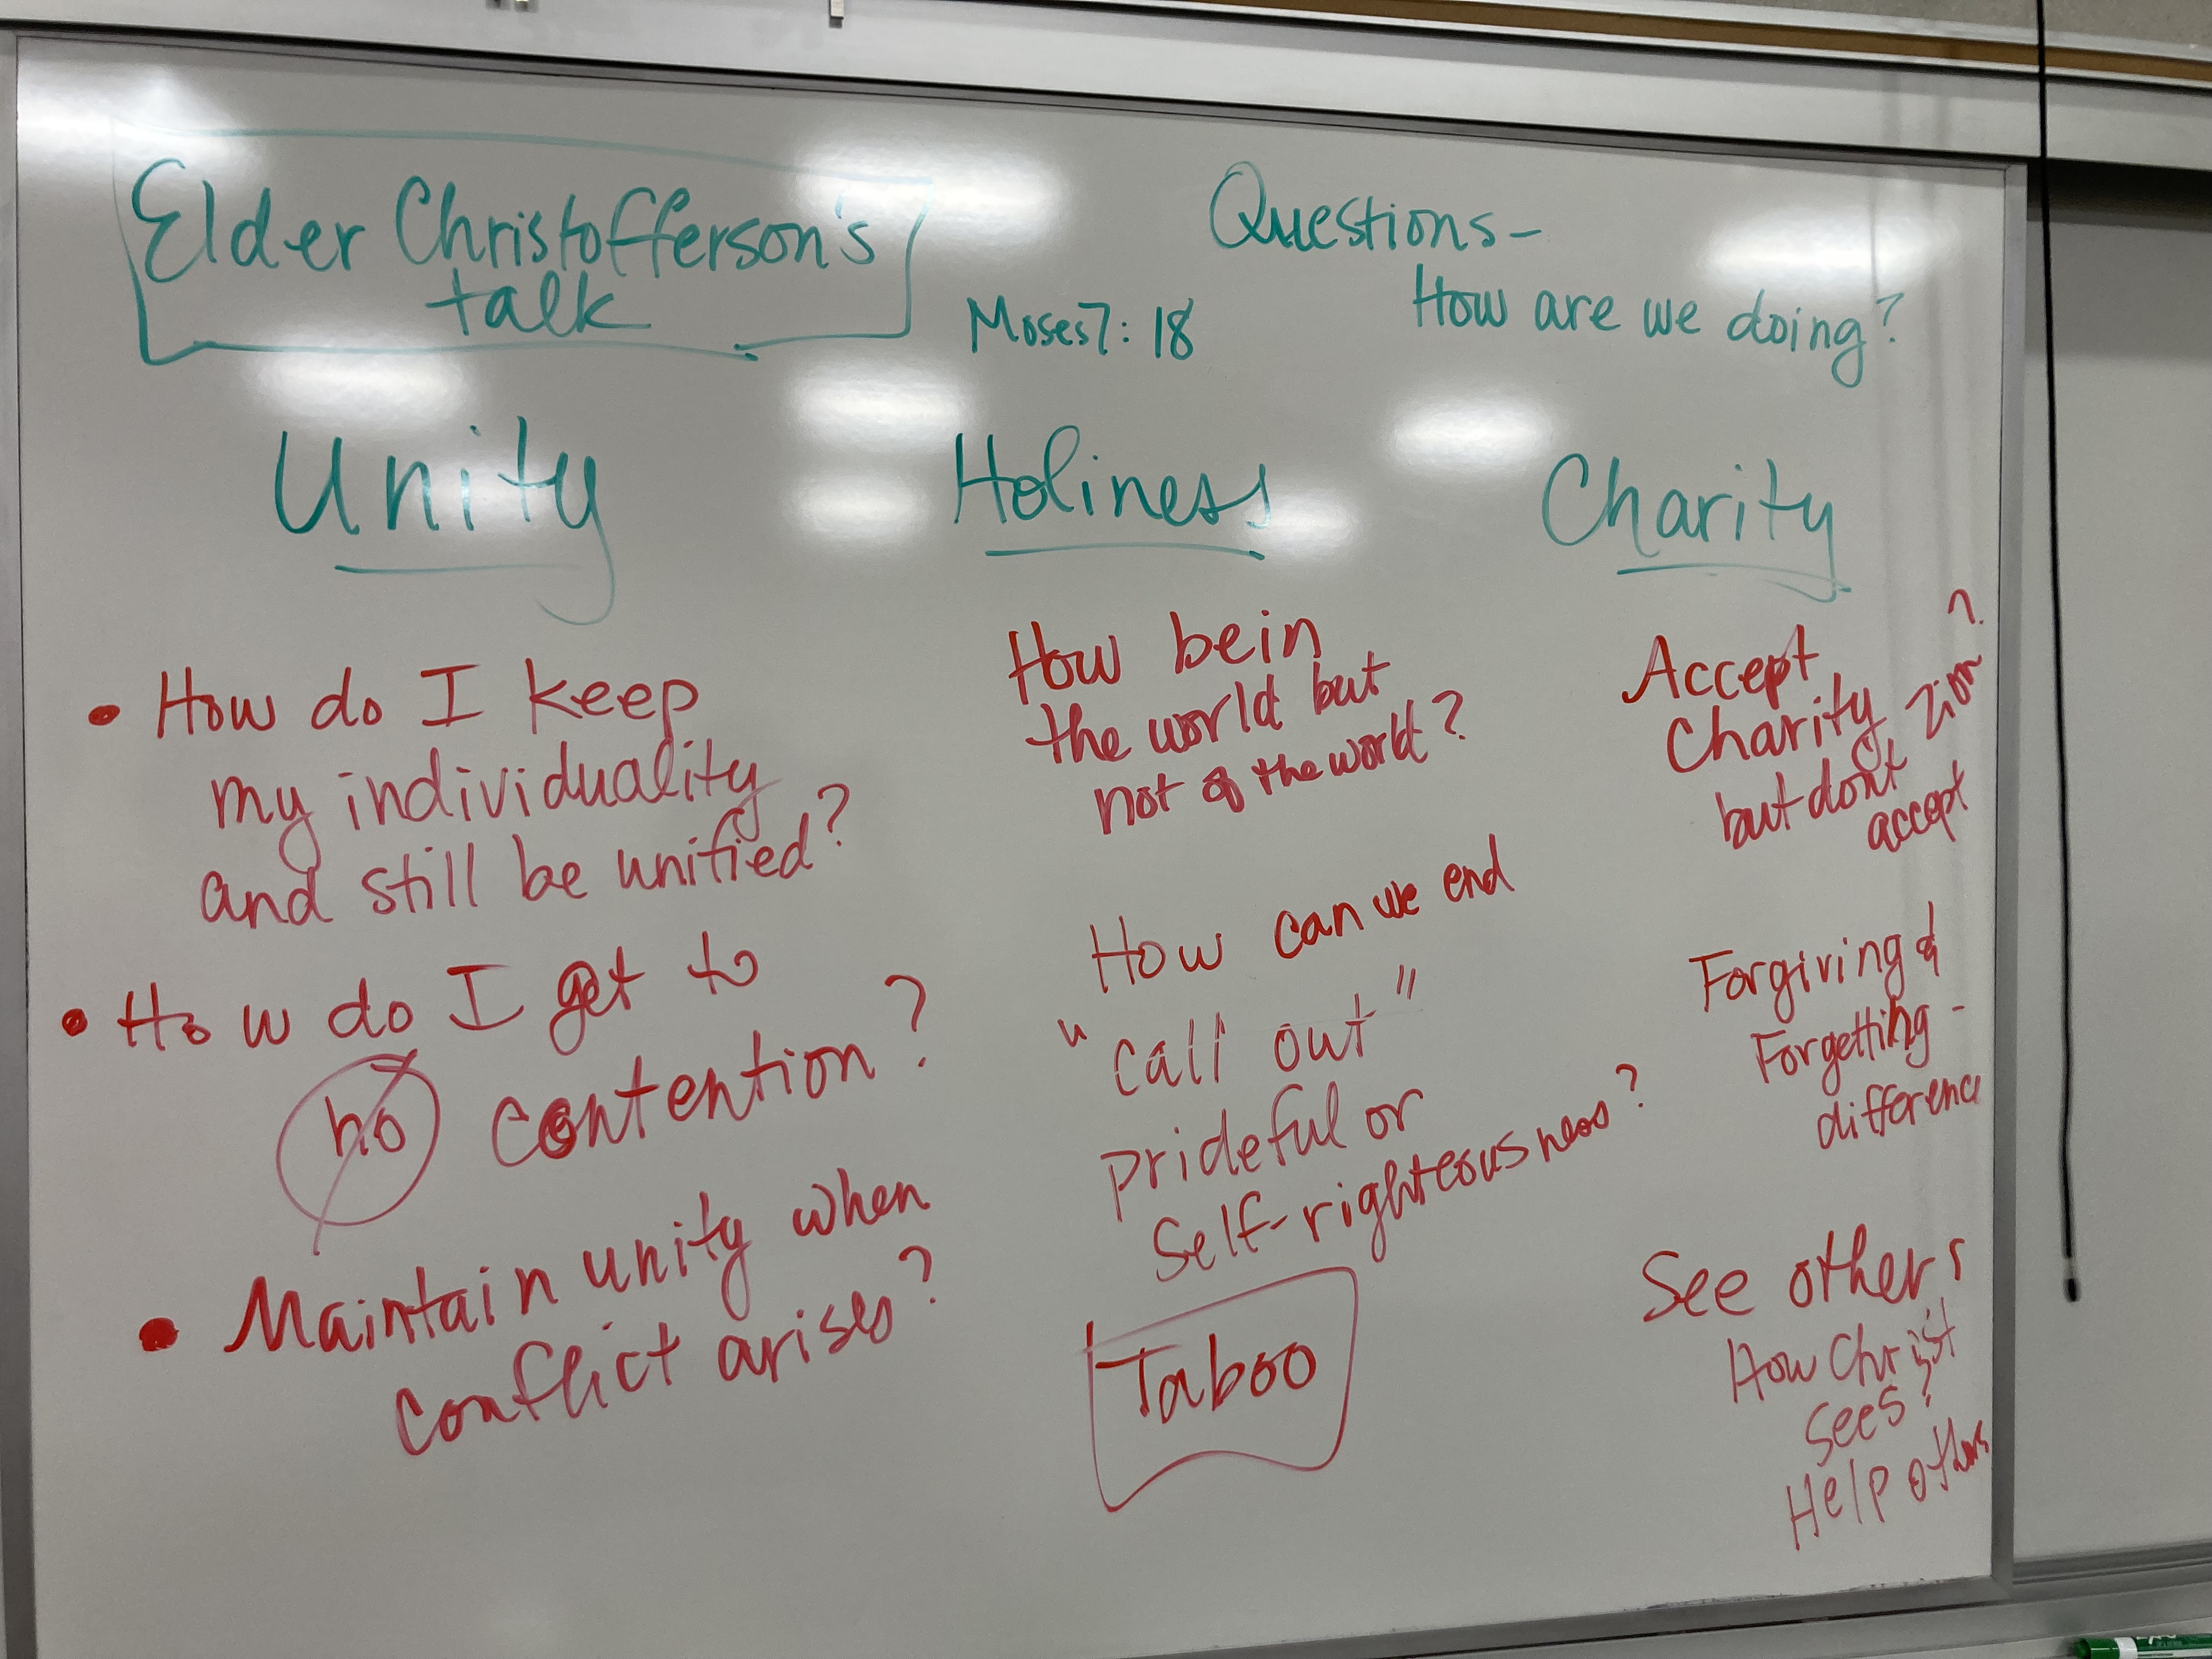 Elder Christofferson's
talk
Moses 7:18
Questions-
How are we doing?
Unity
• How do I keep
my individuality
and still be unified?
• How do I get to
no contention?
• Maintain unity when
conflict arises?
Holiness
How be in
the world but
not of the world?
How can we end
"call out"
prideful or
Self-righteousness?
Taboo
Charity
Accept
Charity
but dont
accept
Zion?
Forgiving &
Forgetting -
difference
See others
How Christ
sees?
Help others